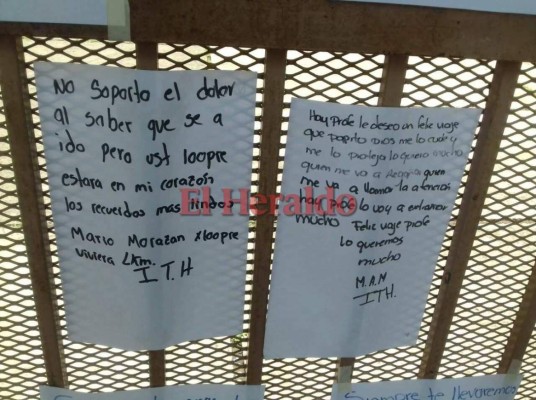 No Soporto el dolor
al saber que se a
ido pero ust loopre
estara en mi corazón
los recuerdos mas lindos
Mario Morazan xloopre
vivira Lkm.
I T.H
Hay Profe le deseo un feliz viaje
que papito Dios me lo cuide y
me lo proteja lo quiero mucho
quien me va a quien
me va a llamar la atencion
Hay profe lo voy a extrañar
mucho Feliz viaje profe
lo queremos
mucho
M.A.M
ITH.
El Heraldo
Siempre te llevaremos